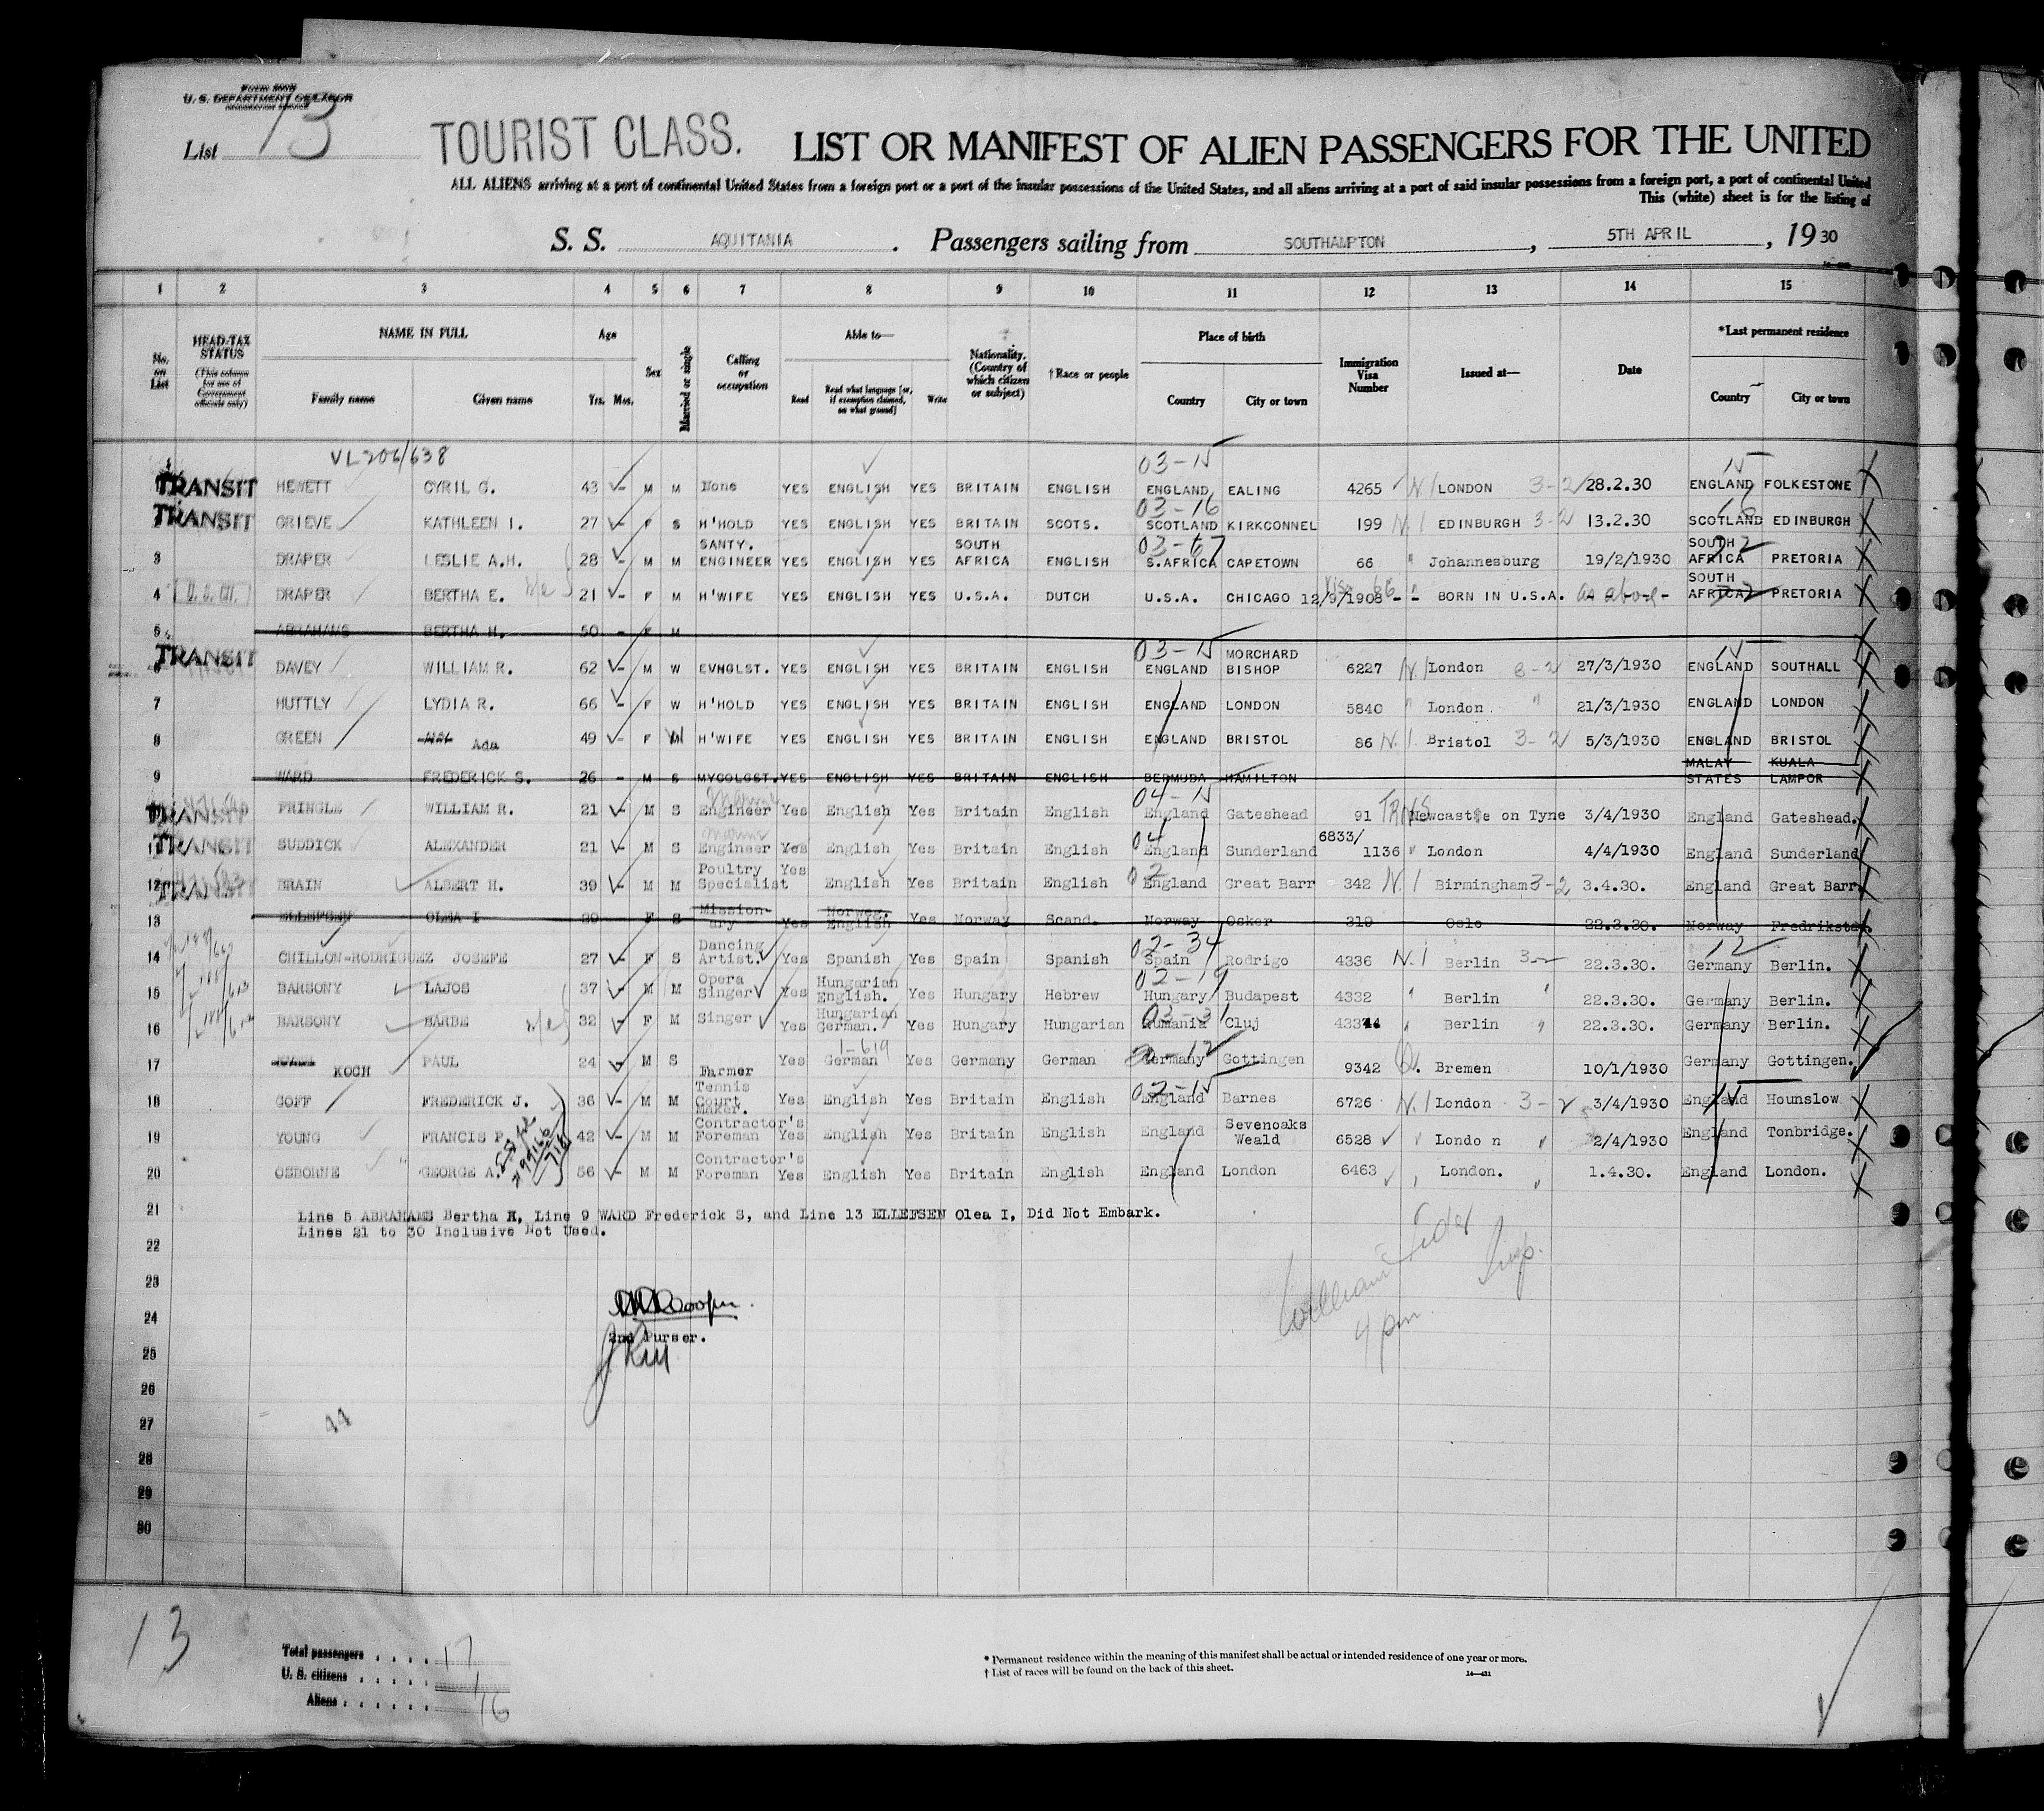 Form 500B
U. S. DEPARTMENT OF LABOR
IMMIGRATION SERVICE
List 13
TOURIST CLASS. LIST OR MANIFEST OF ALIEN PASSENGERS FOR THE UNITED
ALL ALIENS arriving at a port of continental United States from a foreign port or a port of the insular possessions of the United States, and all aliens arriving at a port of said insular possessions from a foreign port, a port of continental United
This (white) sheet is for the listing of
S. S. AQUITANIA . Passengers sailing from SOUTHAMPTON , 5TH APRIL , 19 30
1 2 3 4 5 6 7 8 9 10 11 12 13 14 15
No. on List
HEAD-TAX STATUS (This column for use of Government officials only)
NAME IN FULL Family name Given name
Age Yrs. Mos.
Sex
Married or single
Calling or occupation
Able to— Read Read what language [or, if exemption claimed, on what ground] Write
Nationality. (Country of which citizen or subject)
†Race or people
Place of birth Country City or town
Immigration Visa Number
Issued at—
Date
*Last permanent residence Country City or town
VL206/638 03-15 15
TRANSIT HEWETT CYRIL G. 43 M M None YES ENGLISH YES BRITAIN ENGLISH ENGLAND EALING 4265 N.I LONDON 3-2 28.2.30 ENGLAND FOLKESTONE
03-16 16
TRANSIT GRIEVE KATHLEEN I. 27 F S H'HOLD YES ENGLISH YES BRITAIN SCOTS. SCOTLAND KIRKCONNEL 199 N.I EDINBURGH 3-2 13.2.30 SCOTLAND EDINBURGH
03-67
3 DRAPER LESLIE A.H. 28 M M SANTY. ENGINEER YES ENGLISH YES SOUTH AFRICA ENGLISH S.AFRICA CAPETOWN 66 " Johannesburg 19/2/1930 SOUTH AFRICA PRETORIA
4 U.S.CIT. DRAPER BERTHA E. 21 F M H'WIFE YES ENGLISH YES U.S.A. DUTCH U.S.A. CHICAGO 12/9/1908 - - BORN IN U.S.A. as above - SOUTH AFRICA PRETORIA
5 ABRAHAMS BERTHA H. 50 - F M
03-15 15
TRANSIT 6 DAVEY WILLIAM R. 62 M W EVNGLST. YES ENGLISH YES BRITAIN ENGLISH ENGLAND MORCHARD BISHOP 6227 N.I London 3-2 27/3/1930 ENGLAND SOUTHALL
7 HUTTLY LYDIA R. 66 F W H'HOLD YES ENGLISH YES BRITAIN ENGLISH ENGLAND LONDON 5840 " London " 21/3/1930 ENGLAND LONDON
8 GREEN Ada 49 F M H'WIFE YES ENGLISH YES BRITAIN ENGLISH ENGLAND BRISTOL 86 N.I. Bristol 3-2 5/3/1930 ENGLAND BRISTOL
9 WARD FREDERICK S. 26 - M S MYCOLGST. YES ENGLISH YES BRITAIN ENGLISH BERMUDA HAMILTON MALAY STATES KUALA LAMPOR
04-15
TRANSIT PRINGLE WILLIAM R. 21 M S Engineer Yes English Yes Britain English England Gateshead 91 TRANS Newcastle on Tyne 3/4/1930 England Gateshead.
TRANSIT 11 SUDDICK ALEXANDER 21 M S Engineer Yes English Yes Britain English 04 England Sunderland 6833/ 1136 " London 4/4/1930 England Sunderland
TRANSIT 12 BRAIN ALBERT H. 39 M M Poultry Specialist Yes English Yes Britain English 02 England Great Barr 342 N.I Birmingham 3-2 3.4.30. England Great Barr
13 ELLEFSEN OLEA I 39 F S Mission- ary Yes Norweg. English Yes Norway Scand. Norway Osker 319 Oslo 22.3.30. Norway Fredrikstad.
02-34 12
14 CHILLON-RODRIGUEZ JOSEFE 27 F S Dancing Artist. Yes Spanish Yes Spain Spanish Spain Rodrigo 4336 N.I Berlin 3-2 22.3.30. Germany Berlin.
02-19
15 BARSONY LAJOS 37 M M Opera Singer Yes Hungarian English. Yes Hungary Hebrew Hungary Budapest 4332 " Berlin " 22.3.30. Germany Berlin.
03-31
16 BARSONY BARBE 32 F M Singer Yes Hungarian German. Yes Hungary Hungarian Rumania Cluj 4334 " Berlin " 22.3.30. Germany Berlin.
1-619
17 KOCH PAUL 24 M S Farmer Yes German Yes Germany German Germany Gottingen 9342 Q. Bremen 10/1/1930 Germany Gottingen.
02-15 15
18 GOFF FREDERICK J. 36 M M Tennis Court Maker. Yes English Yes Britain English England Barnes 6726 N.I London 3-2 3/4/1930 England Hounslow
19 YOUNG FRANCIS P. 42 M M Contractor's Foreman Yes English Yes Britain English England Sevenoaks Weald 6528 " London " 2/4/1930 England Tonbridge.
20 OSBORNE GEORGE A. 56 M M Contractor's Foreman Yes English Yes Britain English England London 6463 " London. " 1.4.30. England London.
21 Line 5 ABRAHAMS Bertha H, Line 9 WARD Frederick S, and Line 13 ELLEFSEN Olea I, Did Not Embark.
Lines 21 to 30 Inclusive Not Used.
22
23
24
2nd Purser.
25
26
27
44
28
29
30
William
Insp.
4 pm
13
Total passengers . . . . 17
U. S. citizens . . . . . 1
Aliens . . . . . . 16
* Permanent residence within the meaning of this manifest shall be actual or intended residence of one year or more.
† List of races will be found on the back of this sheet.
14—431